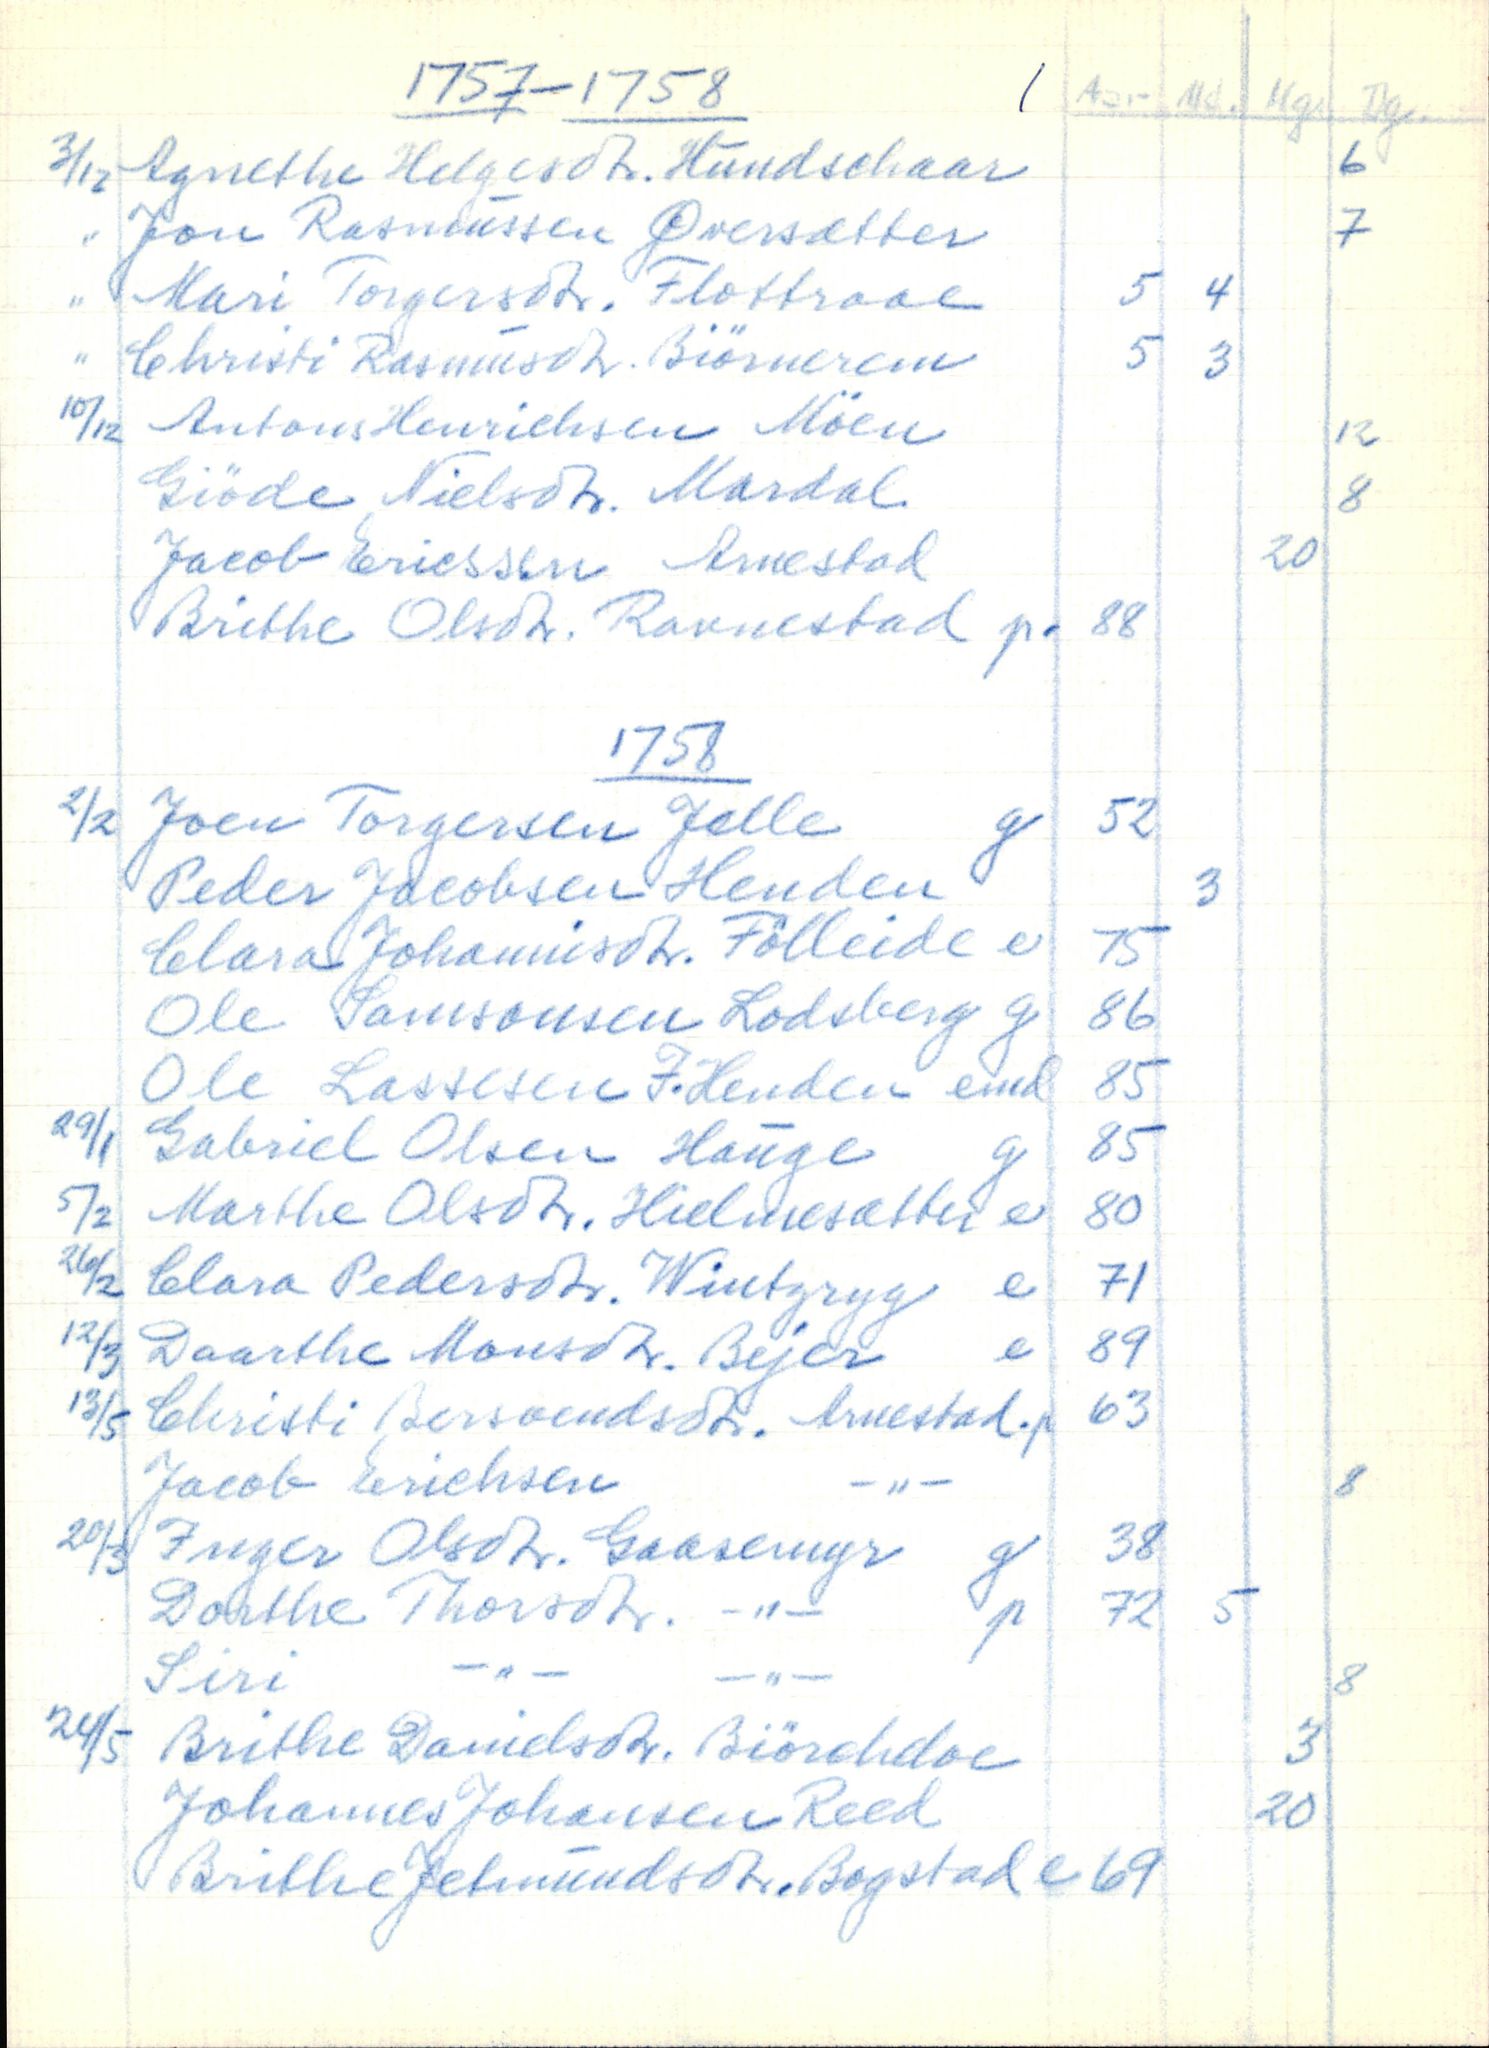 1757-1758 / Aar Md. Ug. Dg.
3/12 Agnethe Helgesdtr. Hundschaar 6
" Jon Rasmussen Øversætter 7
" Mari Torgersdtr. Flottraae 5 4
" Christi Rasmusdtr. Biörnerem 5 3
10/12 Antons Henrichsen Möen 12
Giöde Nielsdtr. Mardal 8
Jacob Ericssen Arnestad 20
Brithe Olsdtr. Ravnestad p. 88
1758
2/2 Joen Torgersen Jelle g 52
Peder Jacobsen Henden 3
Clara Johannisdtr. Fölleide e 75
Ole Samsonsen Lodsberg g 86
Ole Lassesen F. Henden emd 85
29/1 Gabriel Olsen Hauge g 85
5/2 Marthe Olsdtr. Hielmesætter e 80
26/2 Clara Pedersdtr. Wintzryg e 71
12/3 Daarthe Monsdtr. Bejer e 89
13/5 Christi Bersvendsdtr. Arnestad. p 63
Jacob Erichsen -"- 8
20/3 Inger Olsdtr. Gaasemyr g 38
Dorthe Thorsdtr. -"- p 72 5
Siri -"- -"- 8
24/5 Brithe Danielsdtr. Biörchdoe 3
Johannes Johansen Reed 20
Brithe Jetmundsdtr. Bogstad e 69